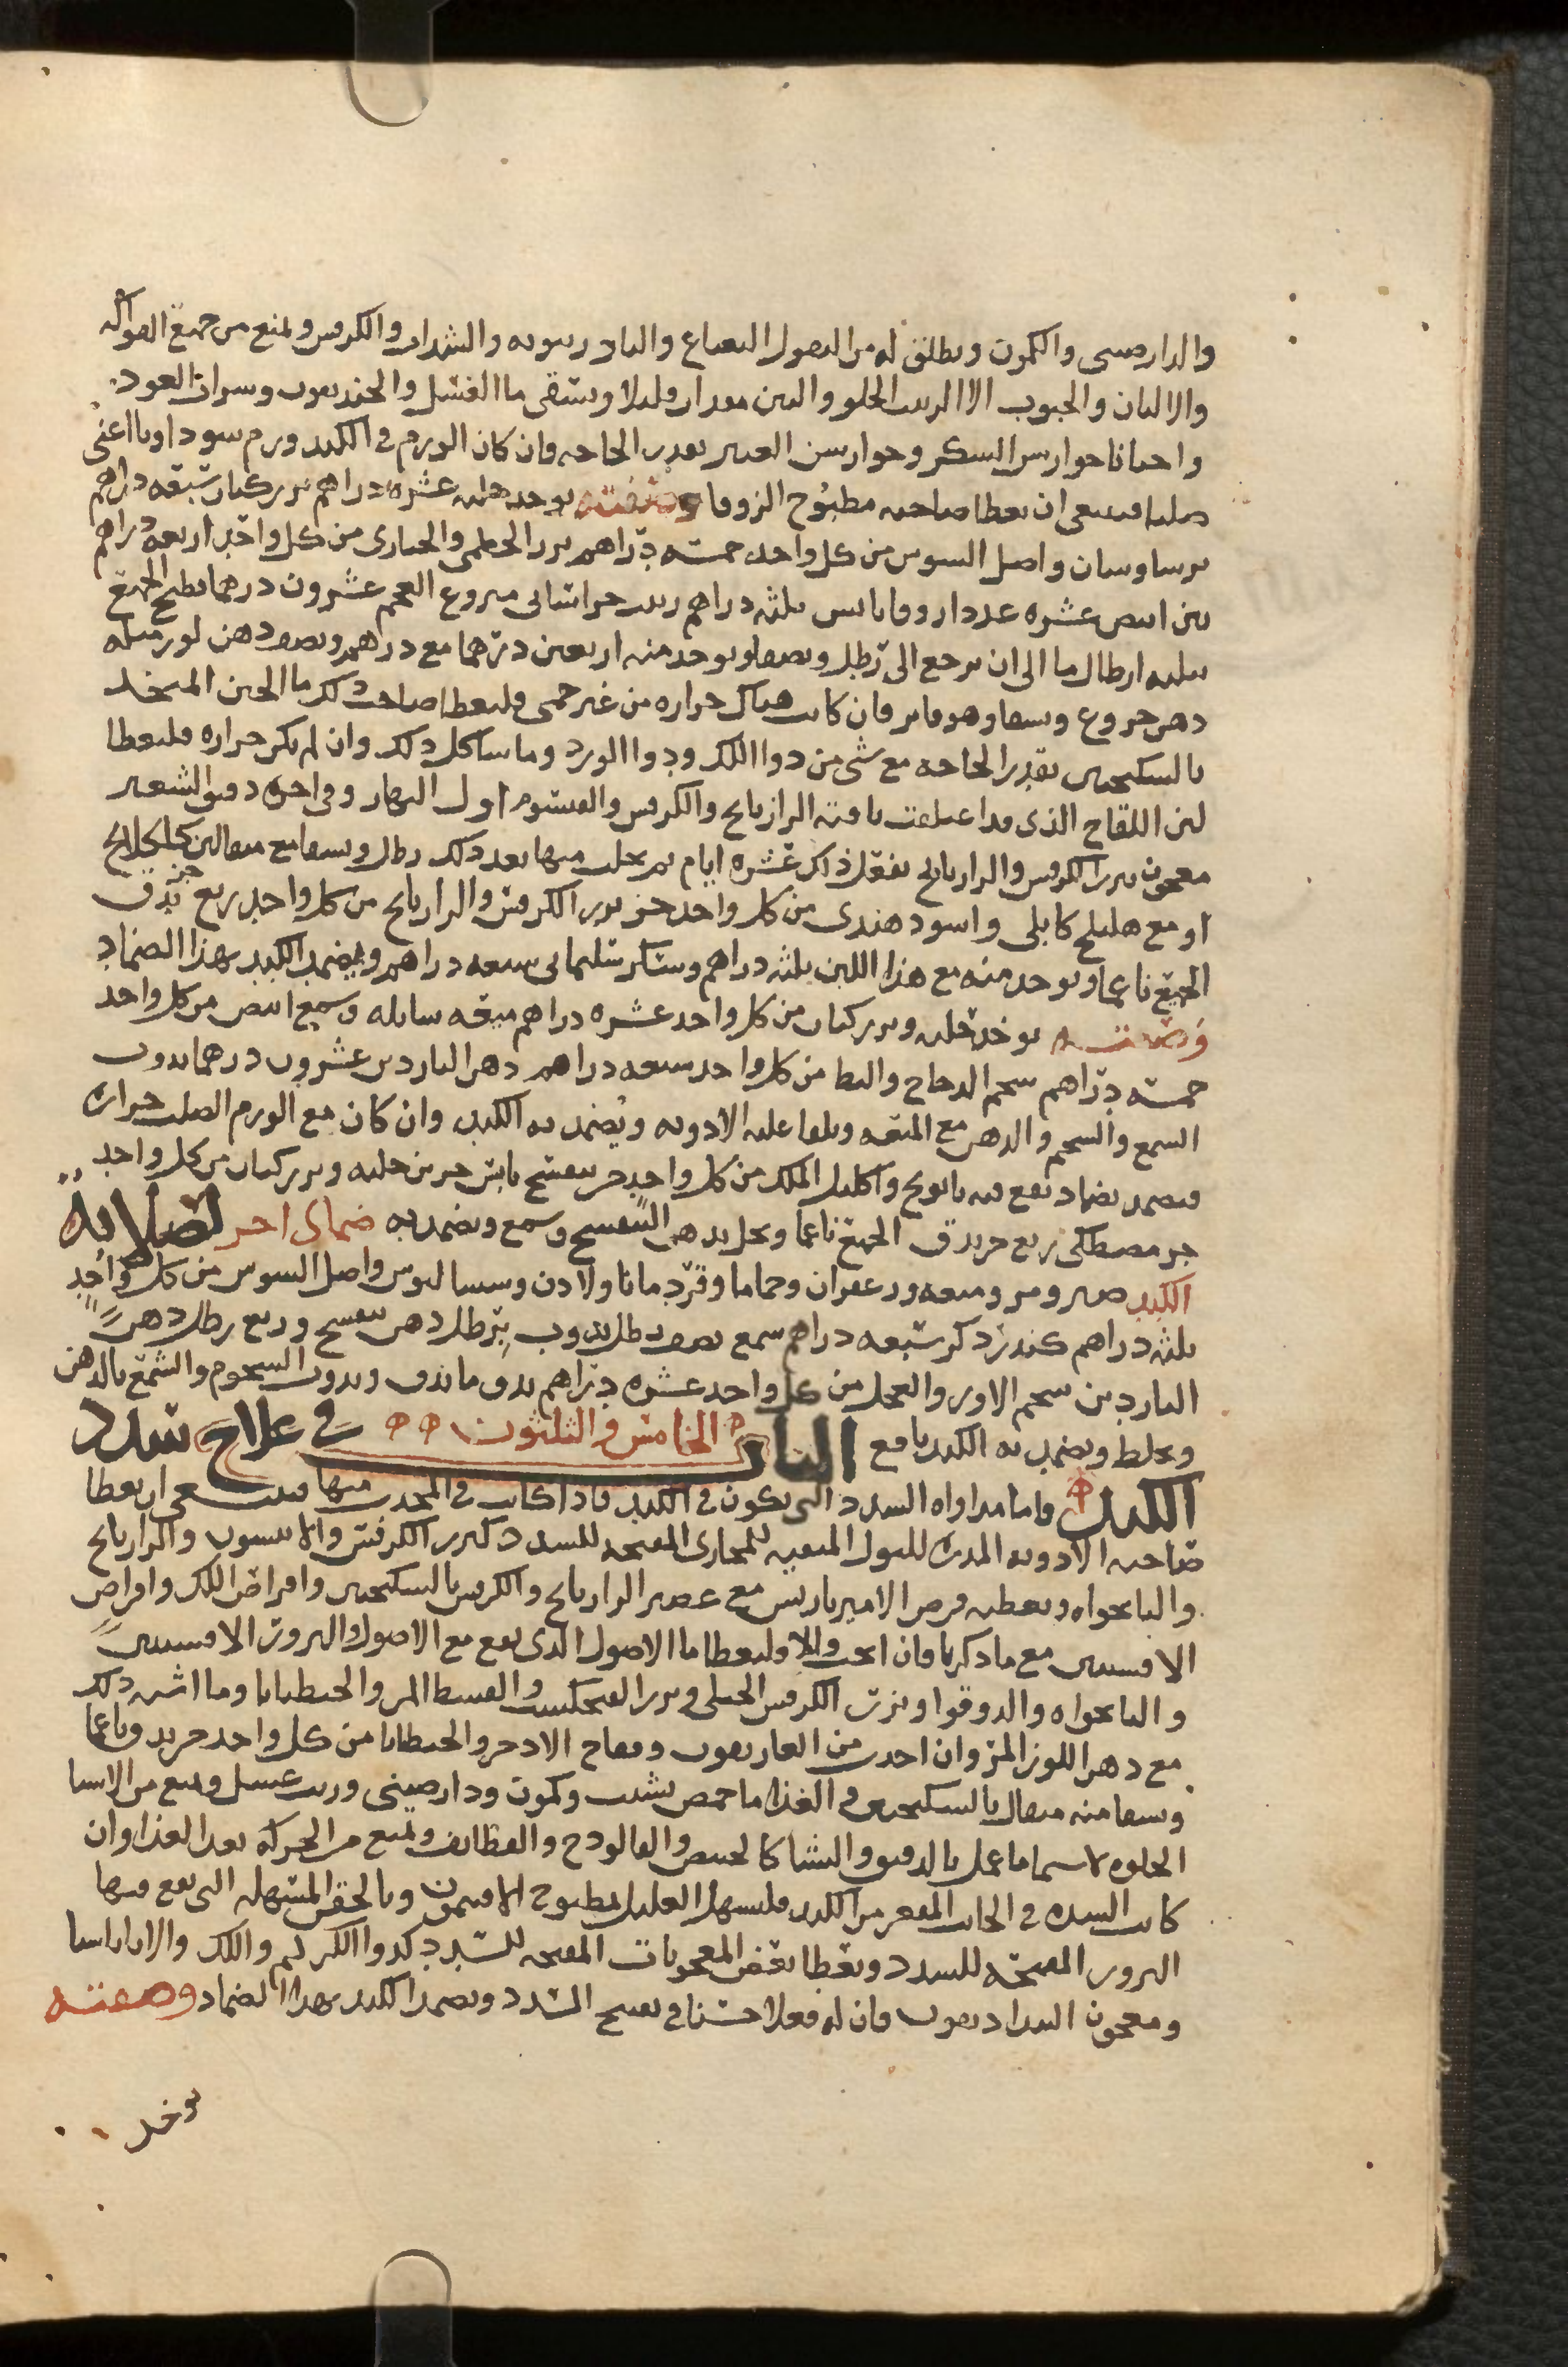 والدارصيني والكمون ويطلق له من البقول النعناع والبادرنبويه والسداب والكرفس ويمنع من جميع الفواكه
والالبان والحبوب الا الزبيب الحلو والتين مقدار قليلا ويسقى ما العسل والخنديقون وشراب العود
واحيانا جوارسن السكر وجوارسن العنبر بقدر الحاجه فان كان الورم في الكبد ورم سوداويا اعني
صلبا فينبغي ان يعطا صاحبه مطبوخ الزوفا وصفته يوخذ حلبه عشره دراهم بزر كتان سبعه دراهم
برساوسان واصل السوس من كل واحد خمسه دراهم بزر الخطمي والخبازى من كل واحد اربعه دراهم
تين ابيض عشره عددا زوفا يابس ثلثه دراهم زبيب خراساني منزوع العجم عشرون درهما يطبخ الجميع
بثلثه ارطال ما الى ان يرجع الى رطل ويصفا ويوخذ منه اربعين درهما مع درهم ونصف دهن لوز مثله
دهن خروع ويسقا وهو فاتر فان كانت هناك حراره من غير حمى فليعطا صاحب ذلك ما الجبن المتخذ
بالسكنجبين بقدر الحاجه مع شي من دوا اللك ودوا الورد وما شاكل ذلك وان لم يكن حراره فليعطا
لبن اللقاح الذى قد اعتلفت باقه الرازيانج والكرفس والقيسوم اول النهار وفي اخره دقيق الشعير
معجون ببزر الكرفس والرازيانج يفعل ذلك عشره ايام ثم يحلب منها بعد ذلك رطل ويسقا مع مثقالين كلكلانج
او مع هليلج كابلي واسود هندى من كل واحد جز بزر الكرفس والرازيانج من كل واحد ربع جز يدق
الجميع ناعما ويوخذ منه مع هذا اللبن ثلثه دراهم وسكر سليماني سبعه دراهم ويضمد الكبد بهذا الضماد
وصفته يوخذ حلبه وبزر كتان من كل واحد عشره دراهم ميعه سايله وشمع ابيض من كل واحد
خمسه دراهم شحم الدجاج والبط من كل واحد سبعه دراهم دهن الناردين عشرون درهما يذوب
الشمع والشحم والدهن مع الميعه ويلقا عليه الادويه ويضمد به الكبد وان كان مع الورم الصلب حراره
فيضمد بضماد يقع فيه بابونج واكليل الملك من كل واحد جز بنفسج يابس جزين حلبه وبزر كتان من كل واحد
جز مصطكى ربع جز يدق الجميع ناعما ويحل بدهن البنفسج وشمع ويضمد به ضماد اخر لصلابه
الكبد صبر ومر وميعه وزعفران وحماما وقردمانا ولادن وسساليوس واصل السوس من كل واحد
ثلثه دراهم كندر ذكر سبعه دراهم شمع نصف رطل يذوب برطل دهن بنفسج وربع رطل دهن
الناردين شحم الاوز والعجل من كل واحد عشره دراهم يدق ما يدق ويذوب الشحوم والشمع بالدهن
ويخلط ويضمد به الكبد نافع الباب الخامس والثلثون في علاج سدد
الكبد واما مداواه السدد التي يكون في الكبد فاذا كانت في المحدب منها فينبغي ان يعطا
صاحبه الادويه المدره للبول المنقيه للمجارى المفتحه للسدد كبزر الكرفس والانيسون والرازيانج
والنانخواه ويعطيه قرص الاميرباريس مع عصير الرازيانج والكرفس بالسكنجبين واقراص اللك واقراص
الافسنتين مع ما ذكرنا فان انجب والا فليعطا ما الاصول الذى يقع مع الاصول والبزور الافسنتين
والنانخواه والدوقوا وبزر الكرفس الجبلي وبزر الفنجنكشت والقسط المر والجنطيانا وما اشبه ذلك
مع دهن اللوز المر وان اخذت من الغاريقون وفقاح الاذخر والجنطيانا من كل واحد جز يدق ناعما
ويسقا منه مثقال بالسكنجبين والغذا ما حمص بشبت وكمون ودارصيني وزيت عسل ويمنع من الاشيا
الحلوه لا سيما ما عمل بالدقيق والنشا كالخبيص والفالوذج والقطايف ويمنع من الحركه بعد الغذا وان
كانت السده في الجانب المقعر من الكبد فليسهل العليل بمطبوخ الافتيمون وبالحقن المسهله التي يقع فيها
البزور المفتحه للسدد ويعطا بعض المعجونات المفتحه للسدد كدوا الكركم واللك والاثاناسيا
ومعجون البدادريقون فان له فعلا حسنا في تفتيح السدد ويضمد الكبد بهذا الضماد وصفته
يوخذ